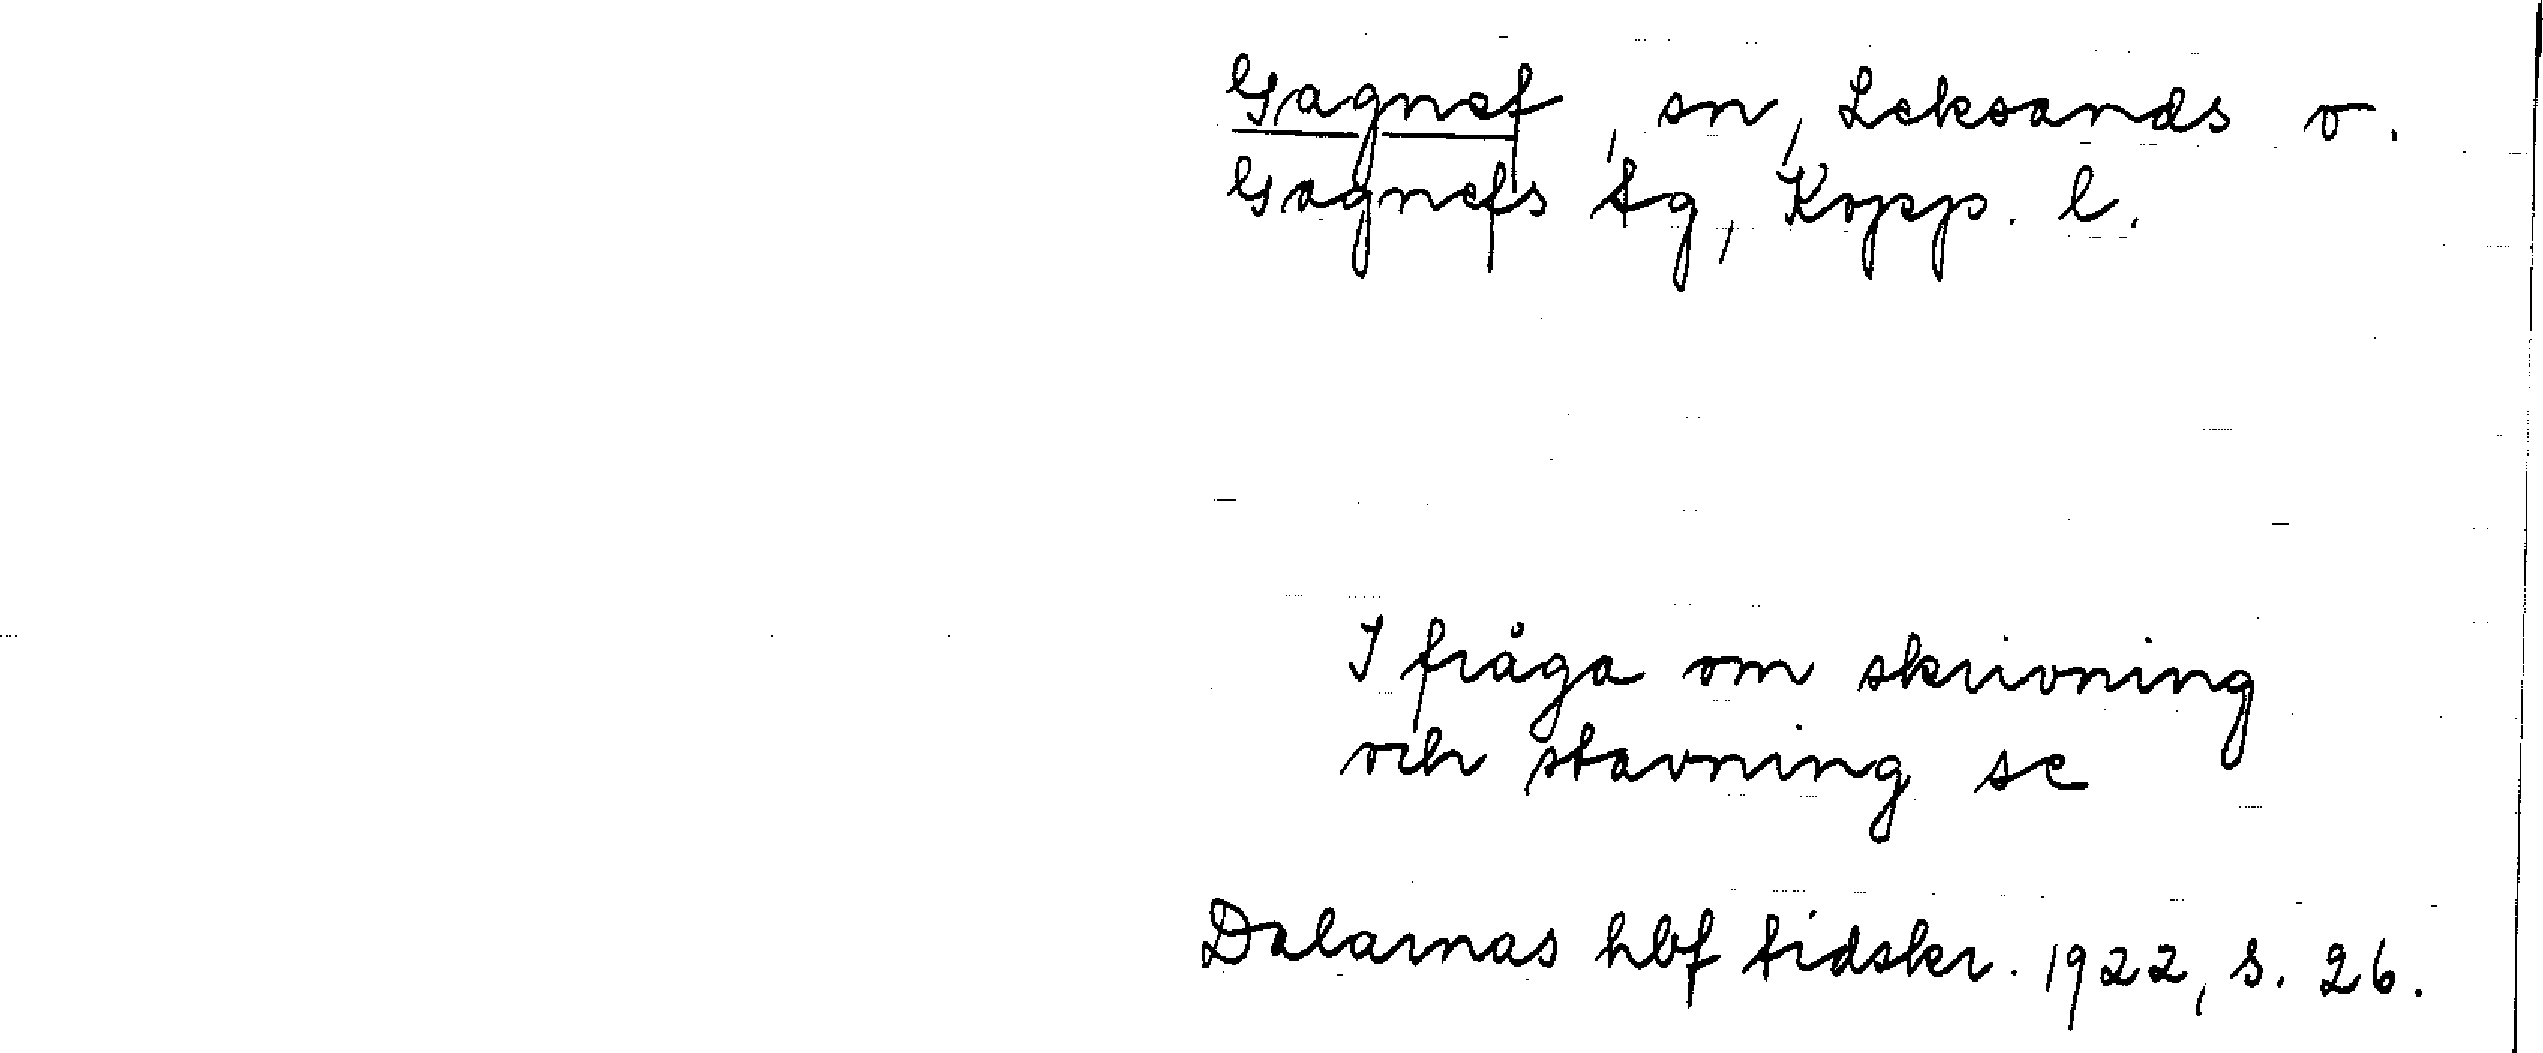 Gagnef, sn, Leksands o.
Gagnefs tg, Kopp. l.
I fråga om skrivning
och stavning se
Dalarnas hbf tidskr. 1922, s. 26.